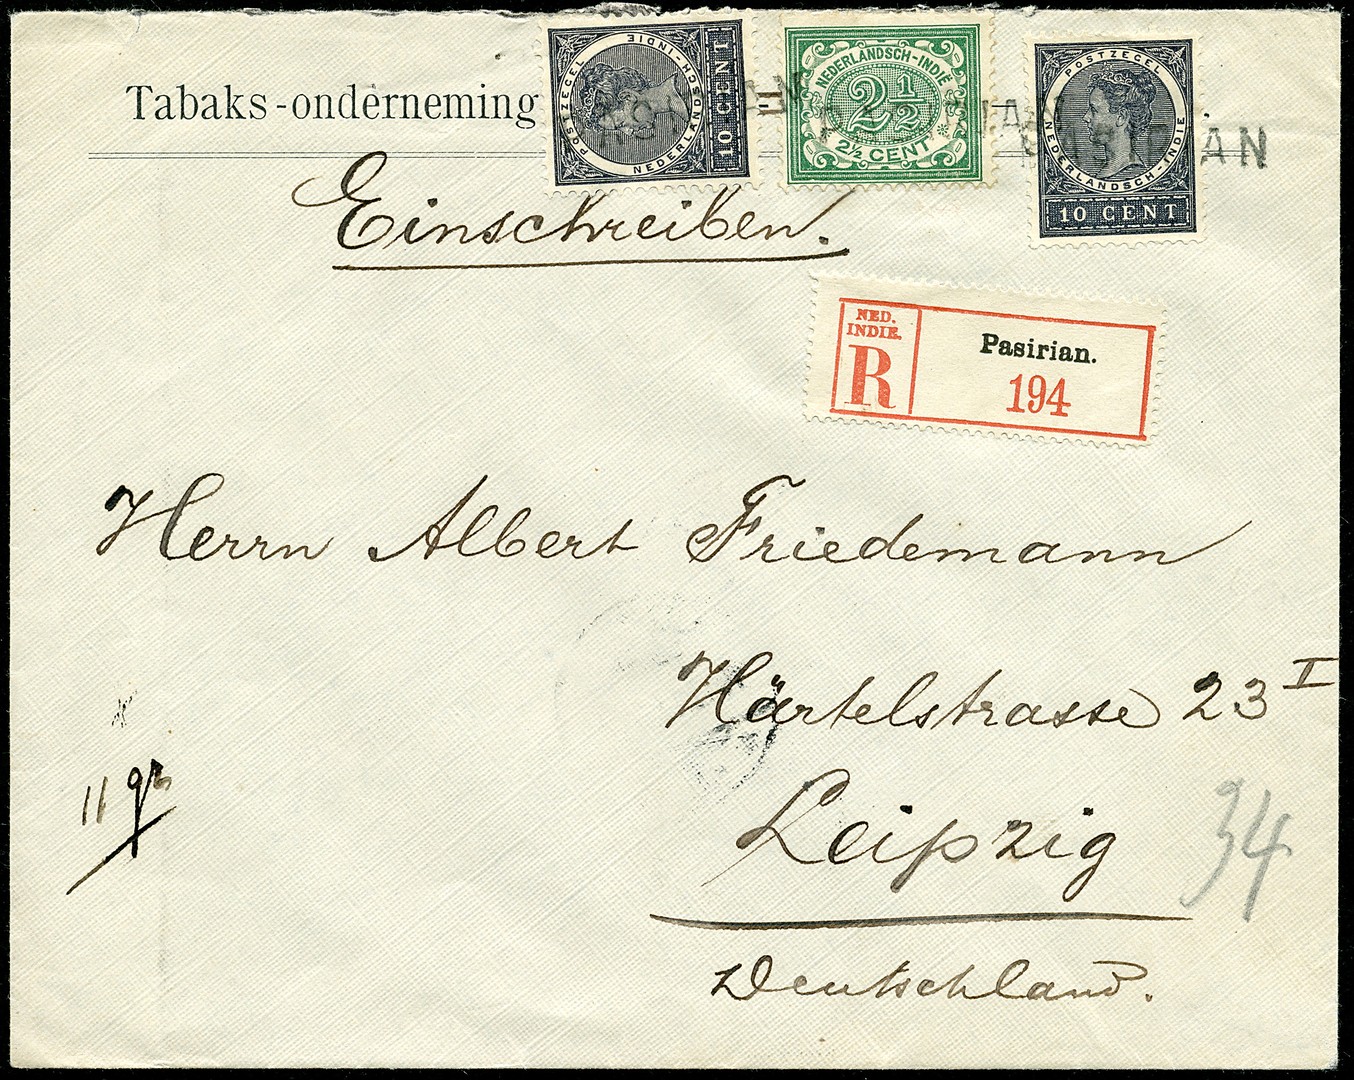 Tabaks-onderneming
POSTZEGEL NEDERLANDSCH-INDIE
10 CENT
NEDERLANDSCH-INDIË
2½
2½ CENT
POSTZEGEL
NEDERLANDSCH-INDIE
10 CENT
PASIRIAN
Einschreiben.
NED. INDIE.
R
Pasirian.
194
Herrn Albert Friedemann
Härtelstrasse 23 I
Leipzig
Deutschland.
11 gr
34